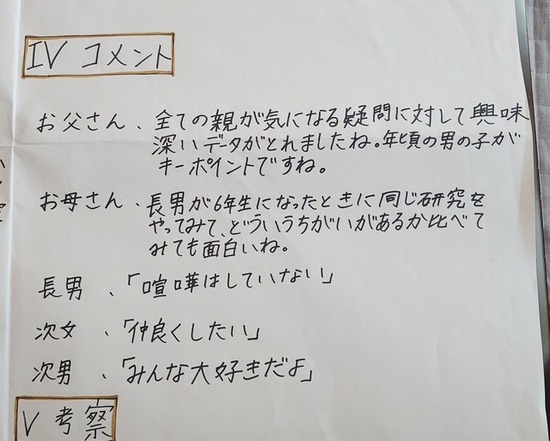 IV コメント
お父さん、全ての親が気になる疑問に対して興味
深いデータがとれましたね。年頃の男の子が
キーポイントですね。
お母さん、長男が6年生になったときに同じ研究を
やってみて、どういうちがいがあるか比べて
みても面白いね。
長男、「喧嘩はしていない」
次女、「仲良くしたい」
次男、「みんな大好きだよ」
V 考察